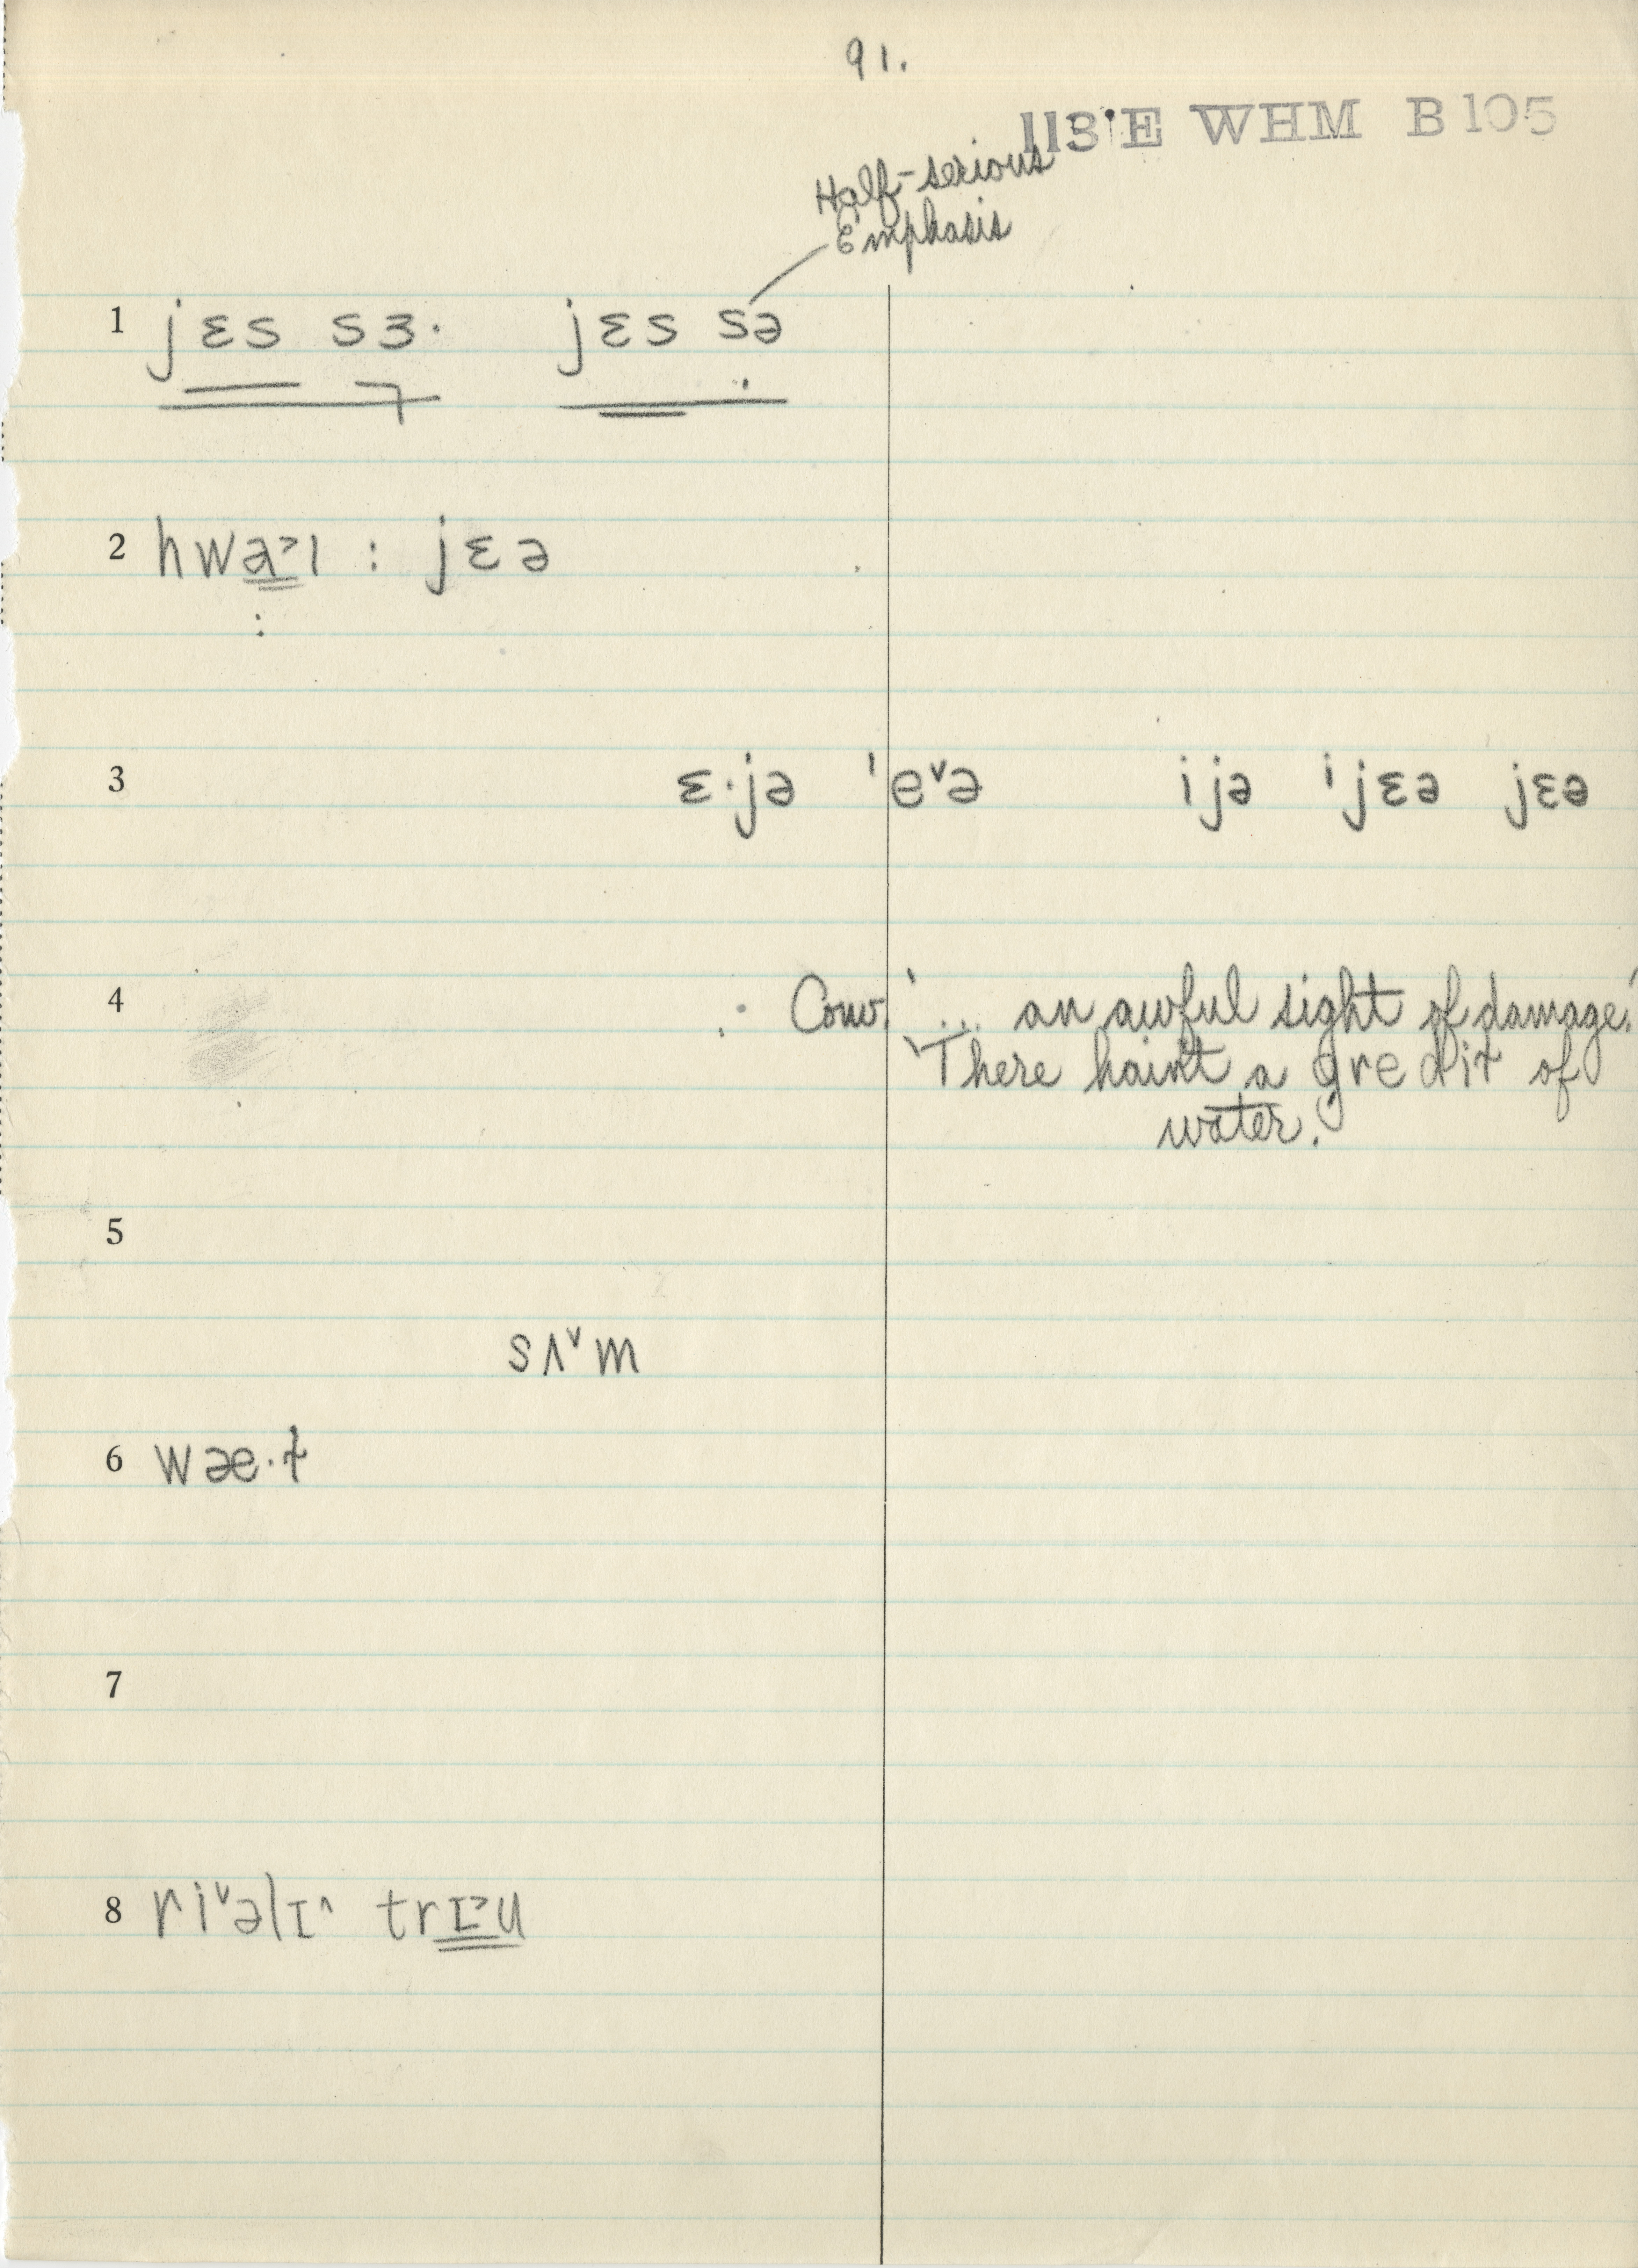 91.
113'E WHM B105
Half-serious
Emphasis
1 jɛs sɜ· jɛs sə
2 hwa˃ɪ : jɛə
3 ɛ·jə 'e˅ə ijə ijɛə jɛə
4 : Conv. '... an awful sight of damage.'
'There hain't a gre dit of
water.'
5
sʌ˅m
6 wæ·t
7
8 ri˅əlɪ^ trɪ˃u